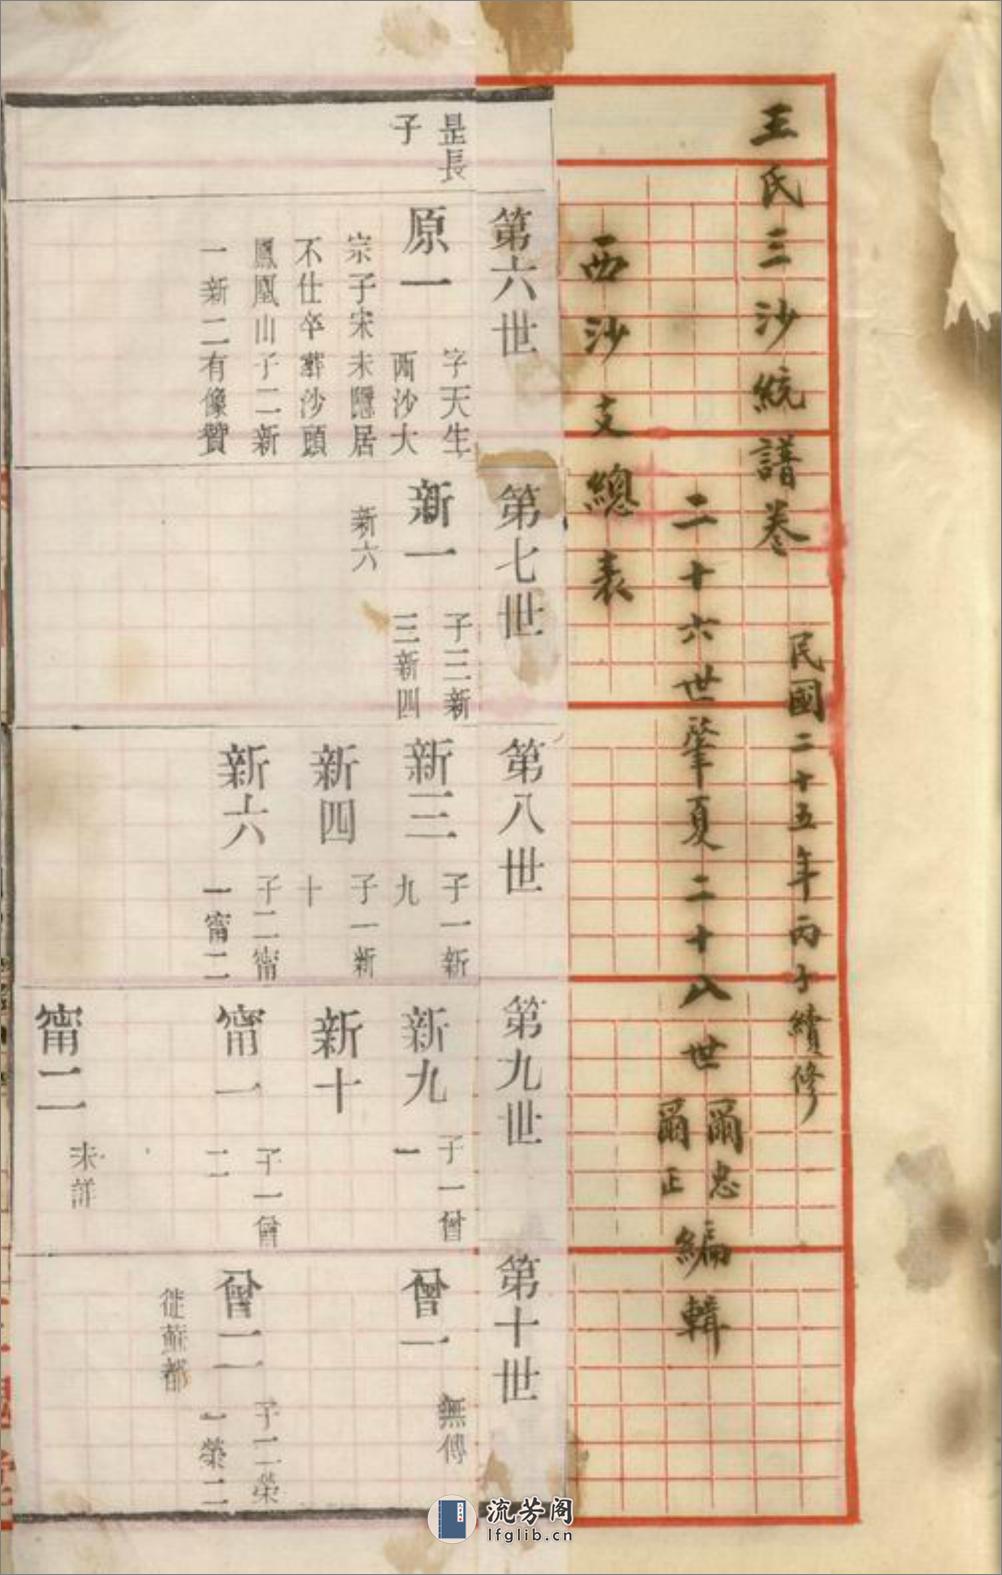 王氏三沙統譜卷
民國二十五年丙子續修
二十六世肇夏二十八世爾忠爾正編輯
西沙支總表
第六世
第七世
第八世
第九世
第十世
是長
子
原一
字天生
西沙大
宗子宋末隱居
不仕卒葬沙頭
鳳凰山子二新
一新二有像贊
新一
子三新
三新四
新六
新三
子一新
九
新四
子一新
十
新六
子二甯
一甯二
新九
子一曾
一
新十
甯一
子一曾
二
甯二
未詳
曾一
無傳
曾二
子二榮
一榮二
徙蘇都
流芳阁
lfglib.cn